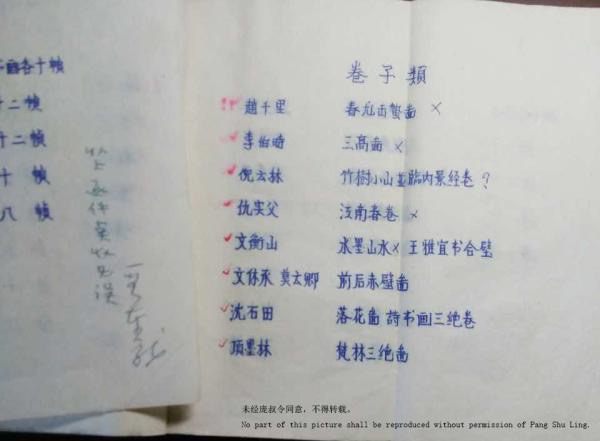 画各十幀
十二幀
十二幀
十幀
八幀
以上
無誤
卷子類
趙千里 春龙出蟄啚 ×
李伯時 三高啚 ×
倪云林 竹樹小山並臨内景経卷 ?
仇实父 江南春卷 ×
文衡山 水墨山水× 王雅宜书合壁
文休承 莫云卿 前后赤壁啚
沈石田 落花啚 詩书画三绝卷
項墨林 梵林三绝啚
未经庞叔令同意，不得转载。
No part of this picture shall be reproduced without permission of Pang Shu Ling.